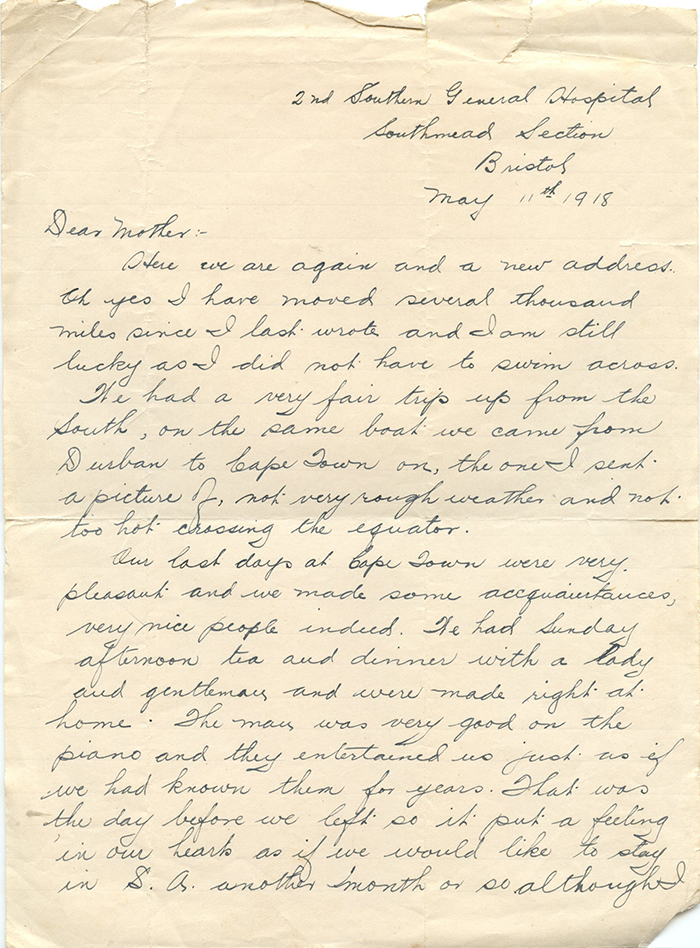 2nd Southern General Hospital
Southmead Section
Bristol
May 11th 1918
Dear Mother:-
Here we are again and a new address.
Oh yes I have moved several thousand
miles since I last wrote and I am still
lucky as I did not have to swim across.
We had a very fair trip up from the
South, on the same boat we came from
Durban to Cape Town on, the one I sent
a picture of, not very rough weather and not
too hot crossing the equator.
Our last days at Cape Town were very
pleasant and we made some accquaintances,
very nice people indeed. We had Sunday
afternoon tea and dinner with a lady
and gentleman and were made right at
home. The man was very good on the
piano and they entertained us just as if
we had known them for years. That was
the day before we left so it put a feeling
in our hearts as if we would like to stay
in S. A. another month or so although I